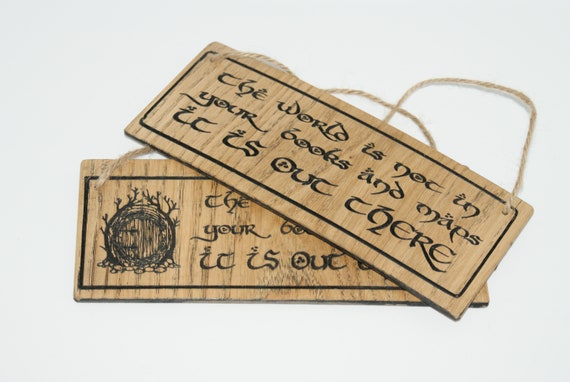 the world is not in
your books and maps
it is out there
the
your bo
it is out